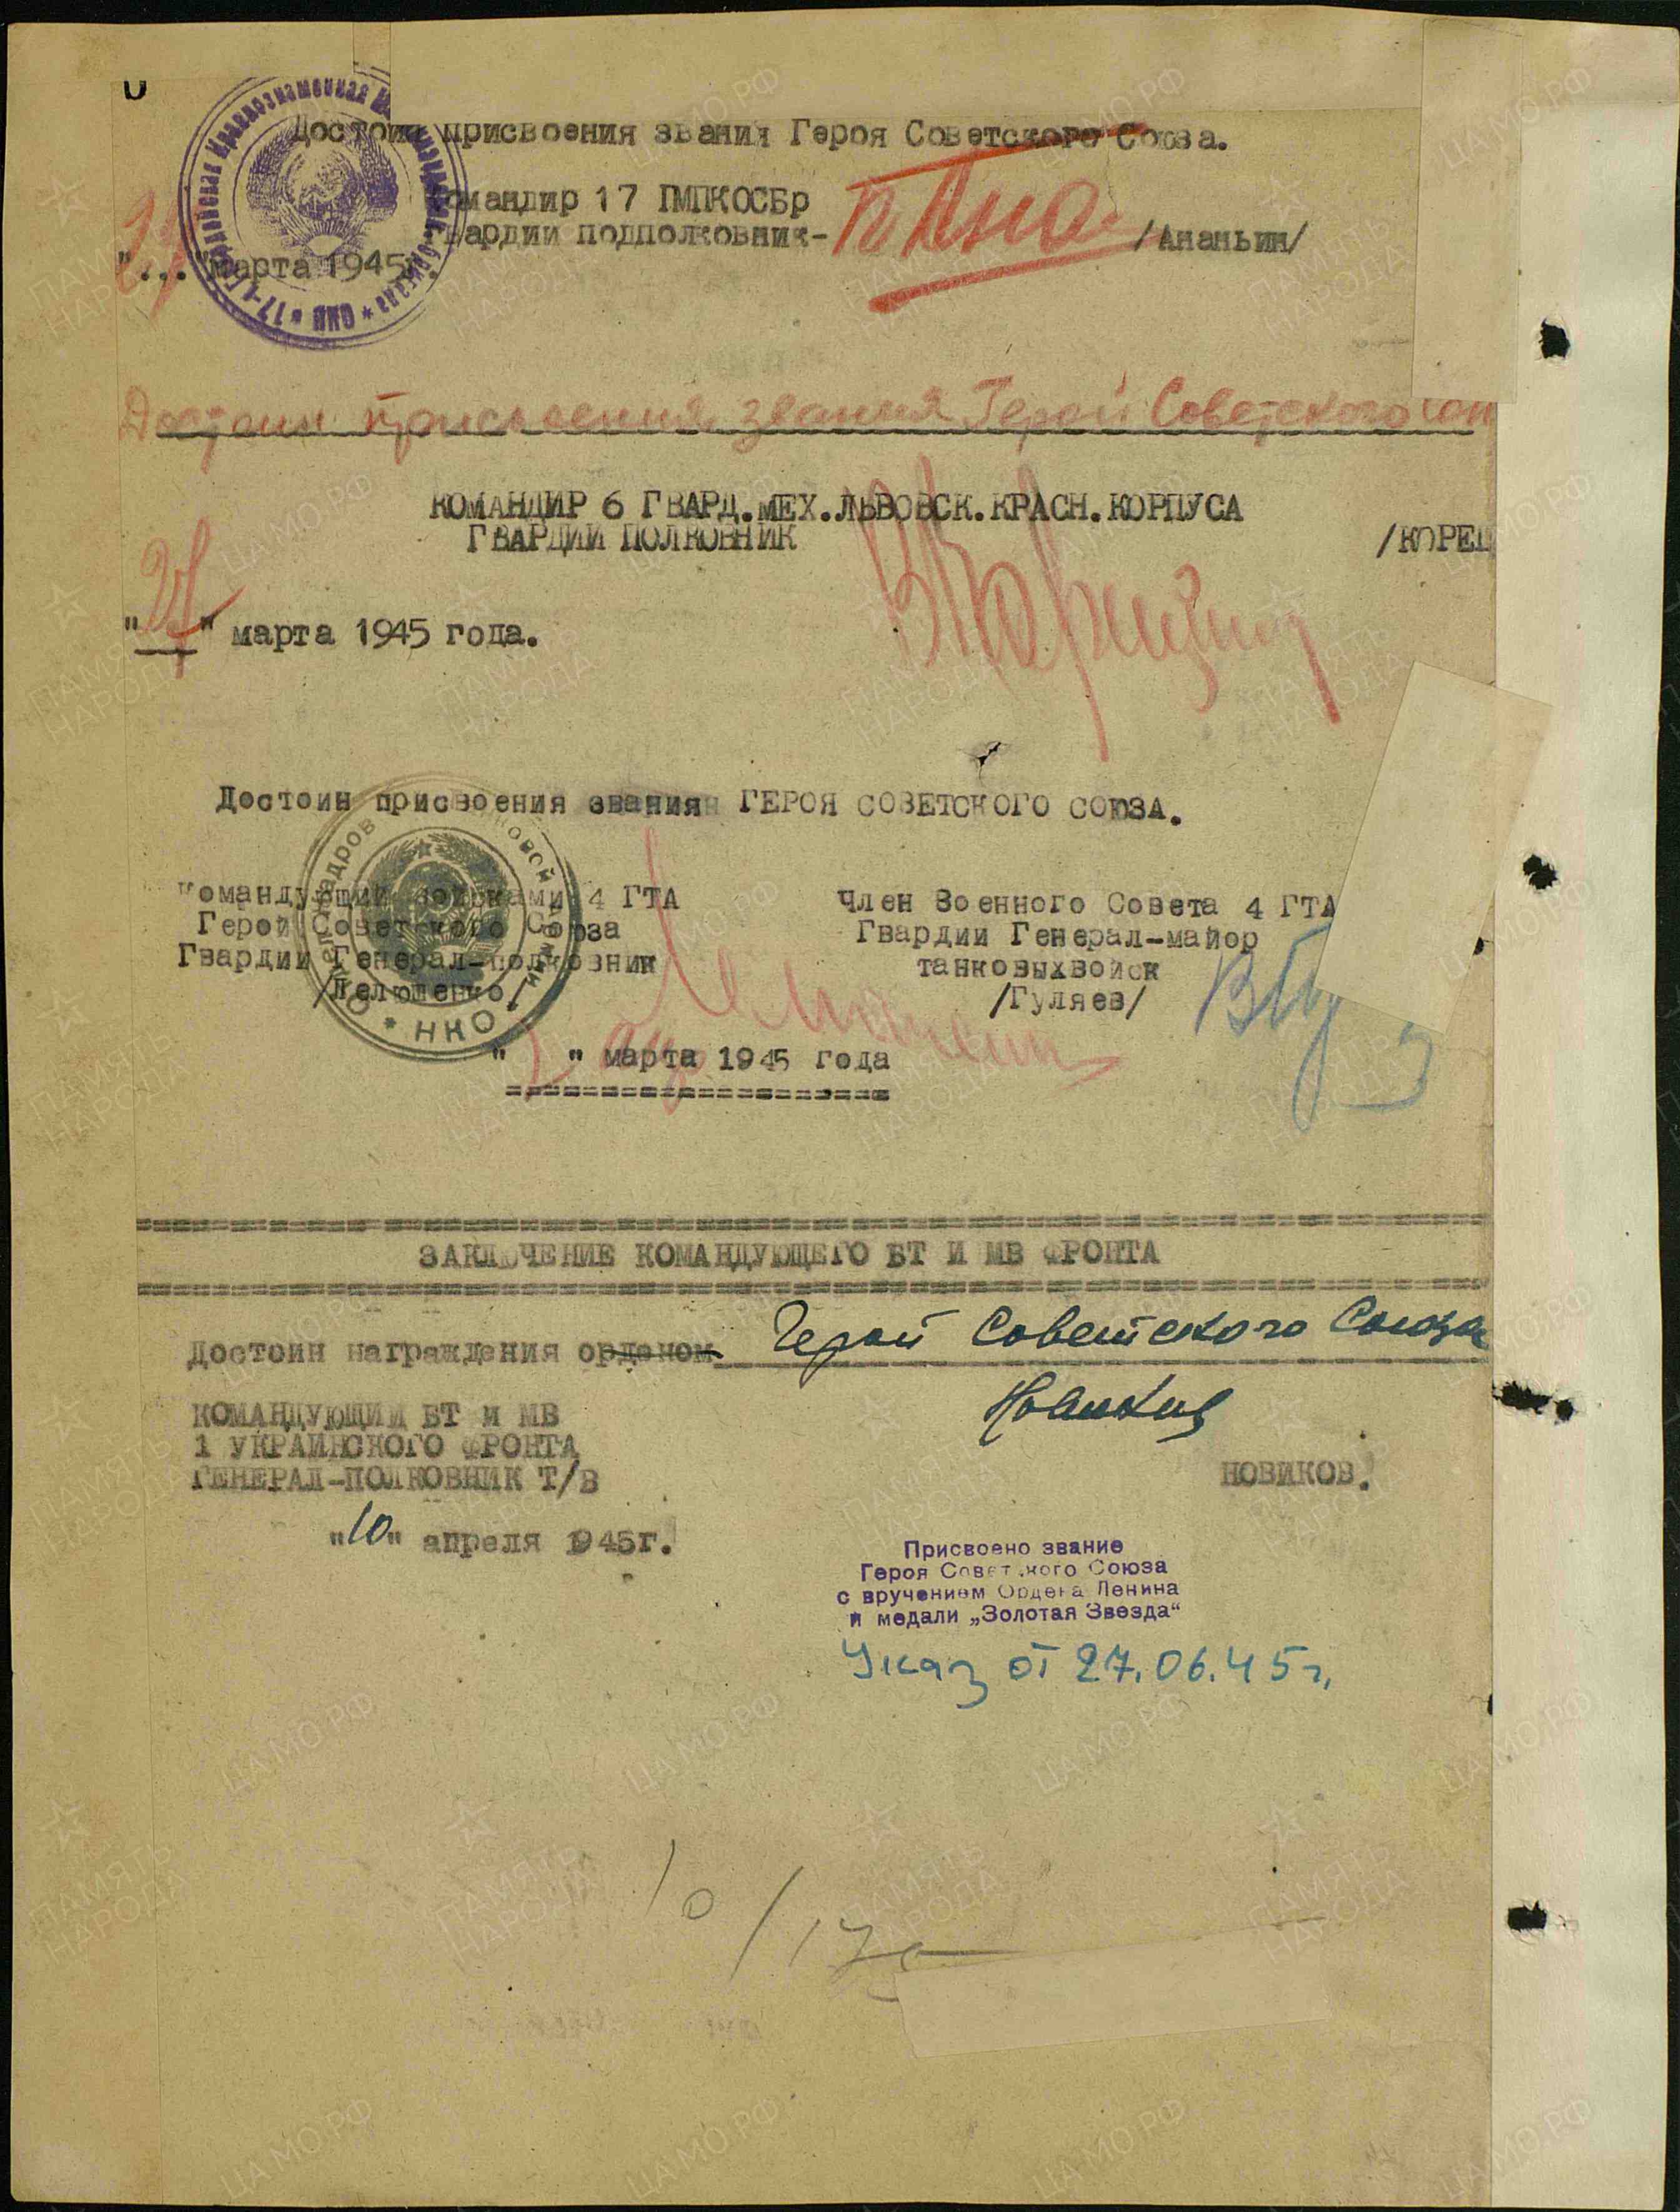 Достоин присвоения звания Героя Советского Союза.
Командир 17 ГМПКОСБр
Гвардии подполковник- /Ананьин/
"..." марта 1945г.
Достоин присвоения звания Герой Советского Сою
КОМАНДИР 6 ГВАРД.МЕХ.ЛЬВОВСК.КРАСН.КОРПУСА
ГВАРДИИ ПОЛКОВНИК /КОРЕЦ
" " марта 1945 года.
Достоин присвоения звания ГЕРОЯ СОВЕТСКОГО СОЮЗА.
Командующий войсками 4 ГТА
Герой Советского Союза
Гвардии Генерал-полковник
/Лелюшенко/
НКО
Член Военного Совета 4 ГТА
Гвардии Генерал-майор
танковыхвойск
/Гуляев/
" " марта 1945 года
ЗАКЛЮЧЕНИЕ КОМАНДУЮЩЕГО БТ И МВ ФРОНТА
Достоин награждения орденом Герой Советского Союза
КОМАНДУЮЩИЙ БТ и МВ
1 УКРАИНСКОГО ФРОНТА
ГЕНЕРАЛ-ПОЛКОВНИК Т/В
Новиков
НОВИКОВ.
"10" апреля 1945г.
Присвоено звание
Героя Советского Союза
с вручением Ордена Ленина
и медали „Золотая Звезда“
Указ от 27.06.45г.